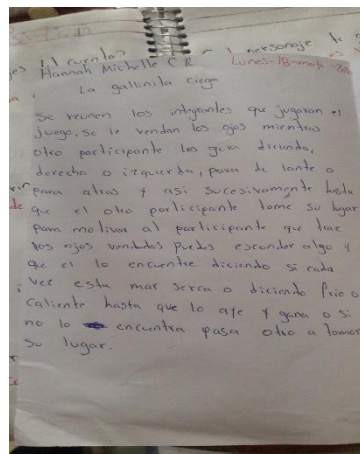 es el cuento
l personaje
Hannah Michelle C R
Lunes-18-
La gallinita ciega
Se reunen los intgrantes que jugaran el
juego, se le vendan los ojos mientras
otro participante los guia diciendo,
derecha o izquierda, para de lante o
para atras y asi sucesivamente hasta
que el otro participante tome su lugar
para motivar al participante que trae
los ojos vendados puedes esconder algo y
que el lo encuentre diciendo si cada
vez esta mas serca o diciendo frio o
caliente hasta que lo aye y gana o si
no lo encuentra pasar otro a tomar
su lugar.